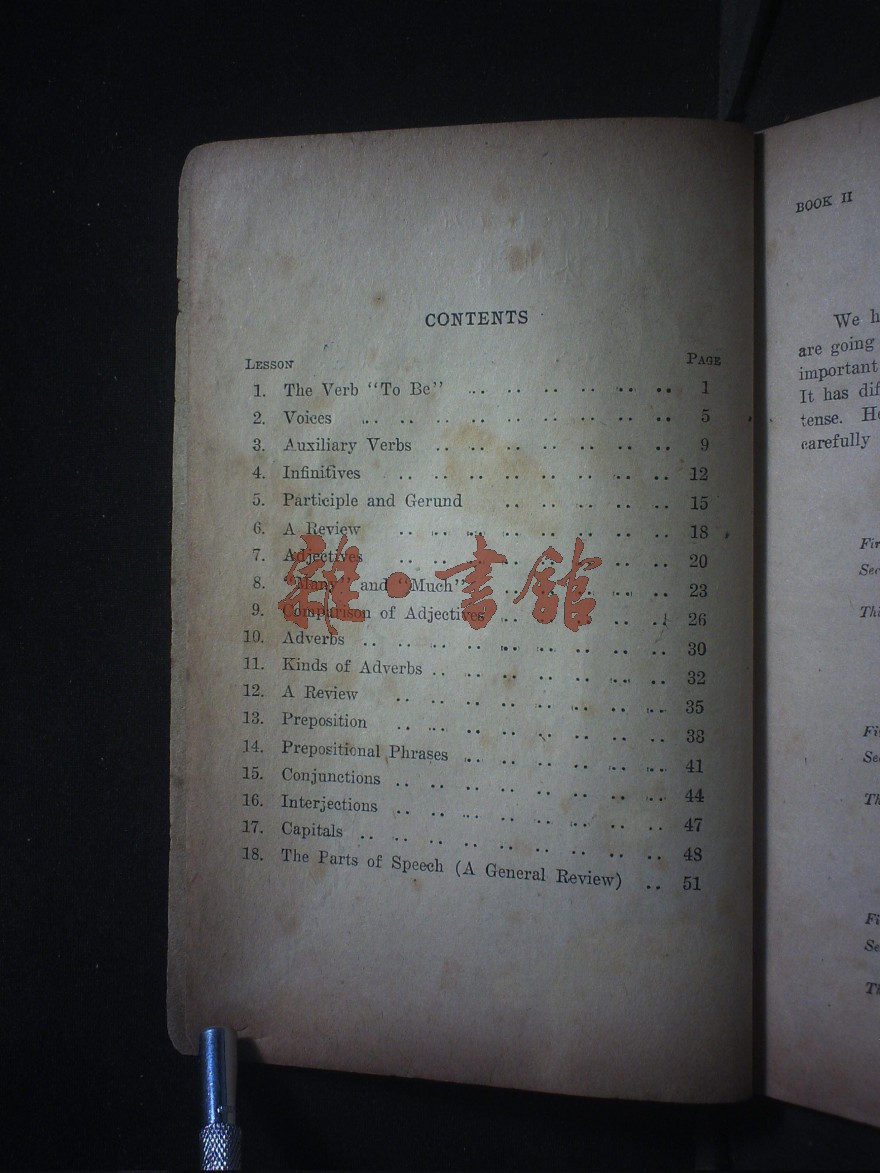 CONTENTS
LESSON PAGE
1. The Verb "To Be" .. .. .. .. .. .. .. 1
2. Voices .. .. .. .. .. .. .. .. .. 5
3. Auxiliary Verbs .. .. .. .. .. .. .. 9
4. Infinitives .. .. .. .. .. .. .. .. 12
5. Participle and Gerund .. .. .. .. .. 15
6. A Review .. .. .. .. .. .. .. .. 18
7. Adjectives .. .. .. .. .. .. .. .. 20
8. "Many" and "Much" .. .. .. .. .. .. 23
9. Comparison of Adjectives .. .. .. .. .. 26
10. Adverbs .. .. .. .. .. .. .. .. .. 30
11. Kinds of Adverbs .. .. .. .. .. .. .. 32
12. A Review .. .. .. .. .. .. .. .. 35
13. Preposition .. .. .. .. .. .. .. .. 38
14. Prepositional Phrases .. .. .. .. .. .. 41
15. Conjunctions .. .. .. .. .. .. .. .. 44
16. Interjections .. .. .. .. .. .. .. .. 47
17. Capitals .. .. .. .. .. .. .. .. .. 48
18. The Parts of Speech (A General Review) .. 51
雜·書館
BOOK II
We
are going
important
It has
tense.
carefully